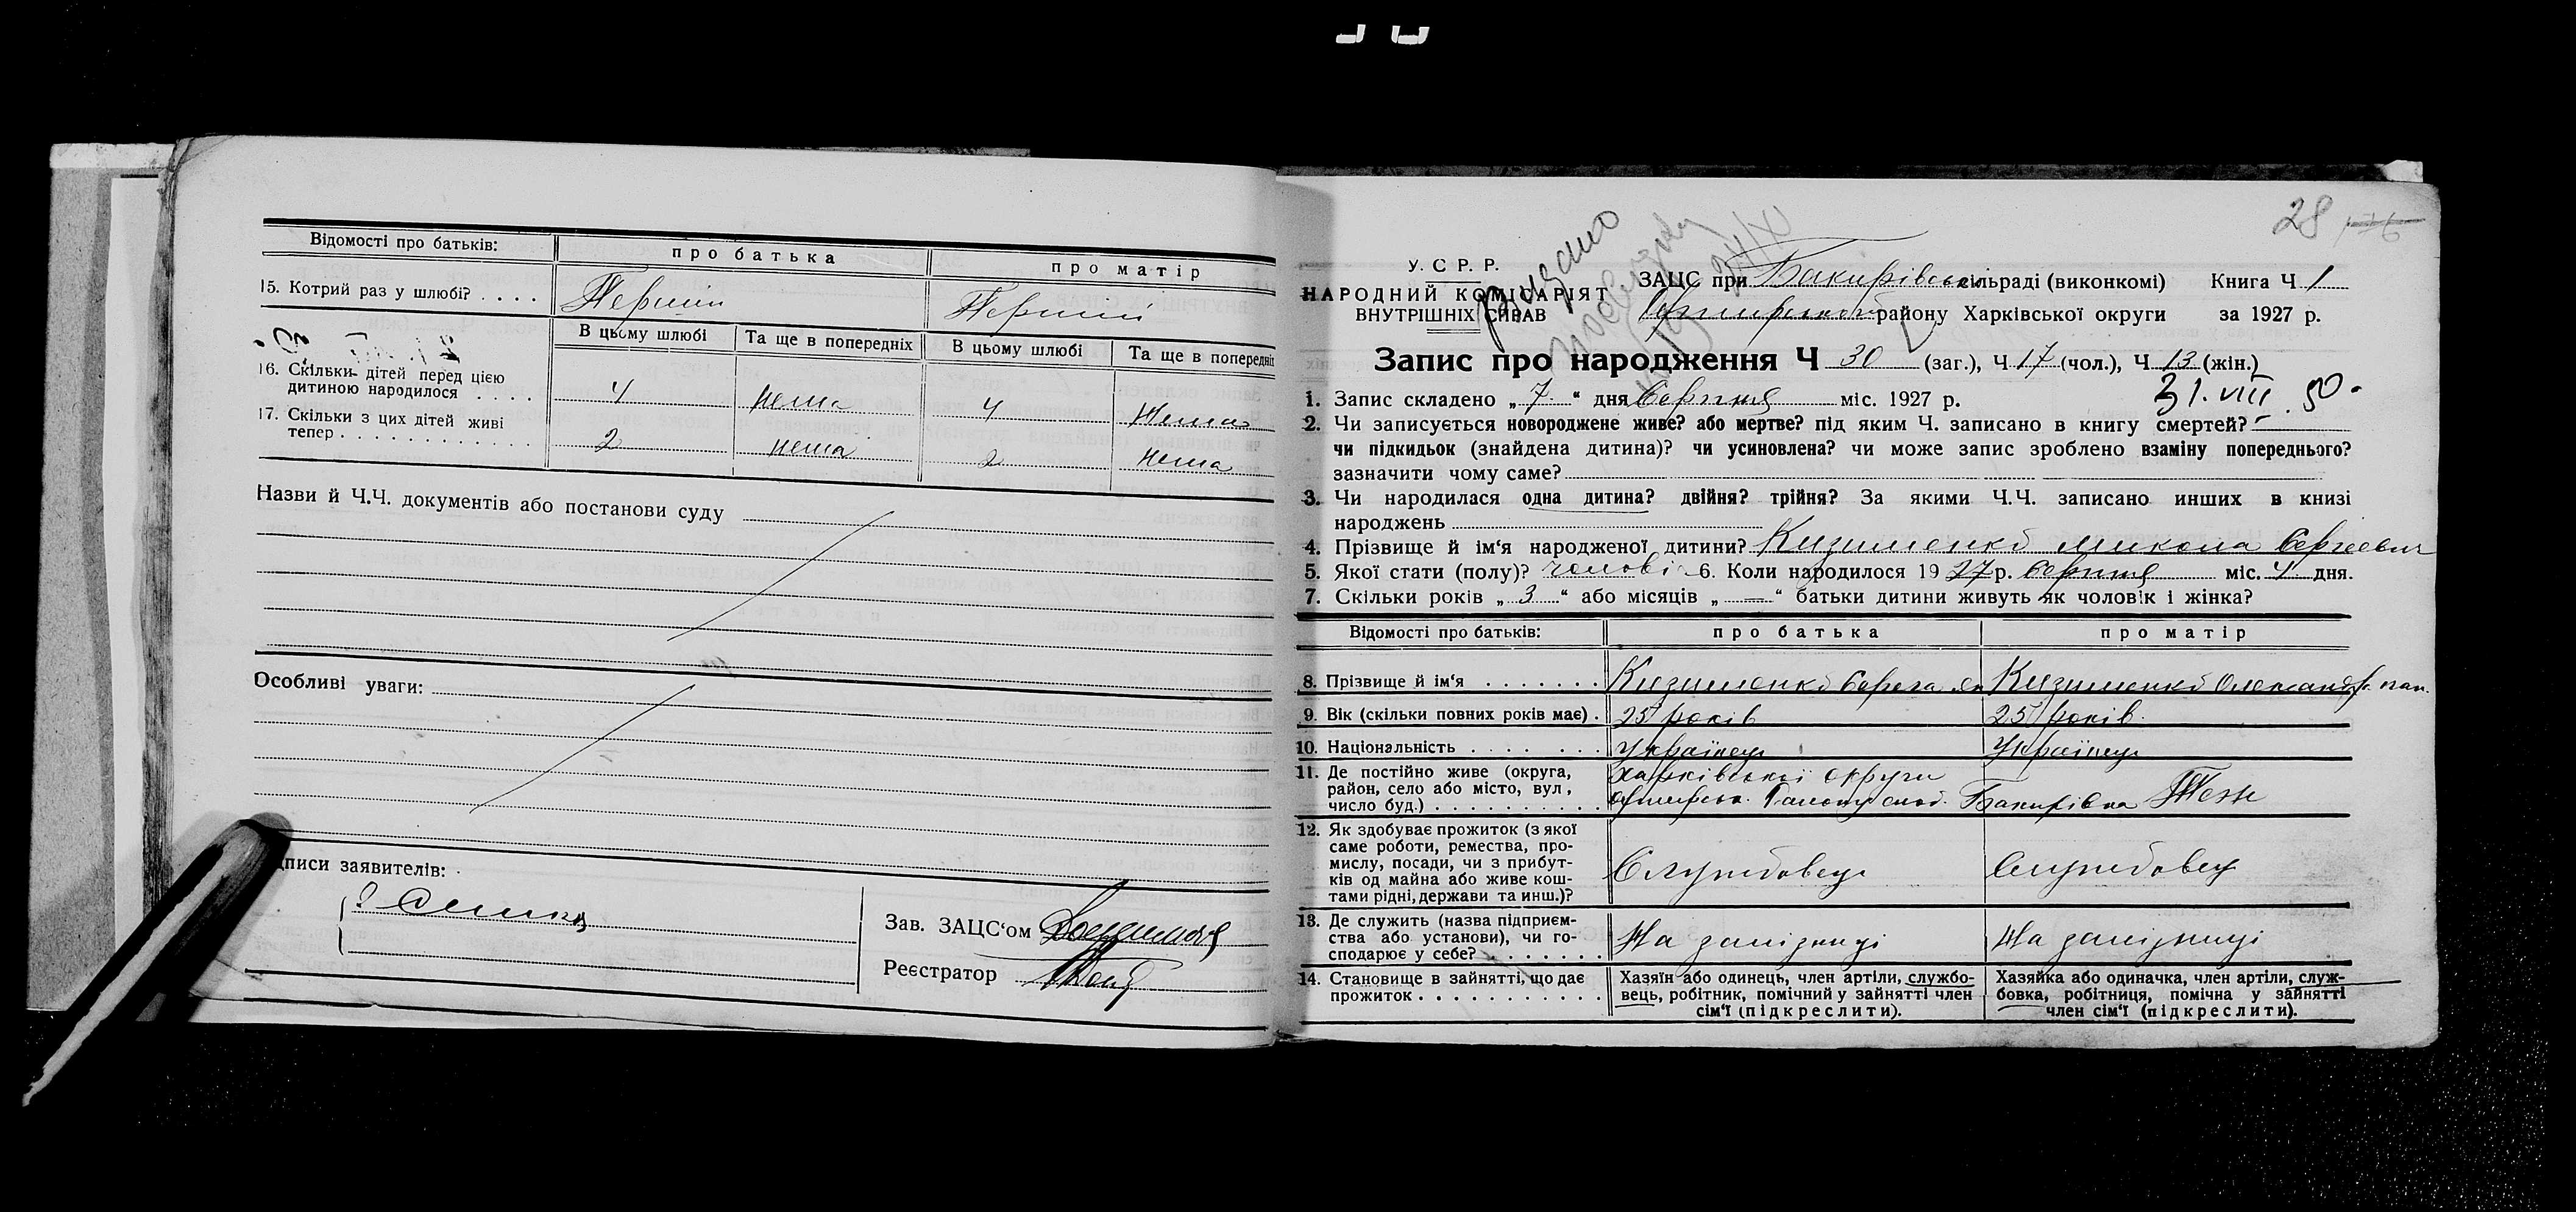 Відомості про батьків:
про батька
про матір
15. Котрий раз у шлюбі? . . . .
Перший
Перший
В цьому шлюбі
Та ще в попередніх
В цьому шлюбі
Та ще в попередніх
16. Скільки дітей перед цією
дитиною народилося . . . .
4
нема
4
Нема
17. Скільки з цих дітей живі
тепер . . . . . . . . . . . . .
2
нема
2
нема
Назви й Ч.Ч. документів або постанови суду
Особливі уваги:
писи заявителів:
Зав. ЗАЦС‘ом
Реєстратор
28
Видано
У. С Р. Р.
НАРОДНИЙ КОМІСАРІЯТ
ВНУТРІШНІХ СПРАВ
ЗАЦС при Бакирівськ сільраді (виконкомі) Книга Ч 1
району Харківської округи за 1927 р.
Запис про народження Ч 30 (заг.), Ч 17 (чол.), Ч 13 (жін.)
31. VIII. 50.
1. Запис складено „ 7 “ дня Серпня міс. 1927 р.
2. Чи записується новороджене живе? або мертве? під яким Ч. записано в книгу смертей? -
чи підкидьок (знайдена дитина)? чи усиновлена? чи може запис зроблено взаміну попереднього?
зазначити чому саме?
3. Чи народилася одна дитина? двійня? трійня? За якими Ч.Ч. записано инших в книзі
народжень
4. Прізвище й ім‘я народженої дитини? Кизименко Микола Сергеевич
5. Якої стати (полу)? чолові 6. Коли народилося 19 27 р. Серпня міс. 4 дня.
7. Скільки років „ 3 “ або місяців „ — “ батьки дитини живуть як чоловік і жінка?
Відомості про батьків:
про батька
про матір
8. Прізвище й ім‘я . . . . . . .
Кизименко Серега
Кизименко Олександр.
9. Вік (скільки повних років має) .
25 років
25 років.
10. Національність . . . . . . .
Українец
Українец
11. Де постійно живе (округа,
район, село або місто, вул,
число буд.) . . . . . . . . . .
Харківської округи
Бакирівка
12. Як здобуває прожиток (з якої
саме роботи, ремества, про-
мислу, посади, чи з прибут-
ків од майна або живе кош-
тами рідні, держави та инш.)?
Службовец
Службовец
13. Де служить (назва підприєм-
ства або установи), чи го-
сподарює у себе? . . . . . . .
На залізниці
На залізниці
14. Становище в зайнятті, що дає
прожиток . . . . . . . . . . .
Хазяїн або одинець, член артіли, службо-
вець, робітник, помічний у зайнятті член
сім‘ї (підкреслити).
Хазяйка або одиначка, член артіли, служ-
бовка, робітниця, помічна у зайнятті
член сім‘ї (підкреслити).